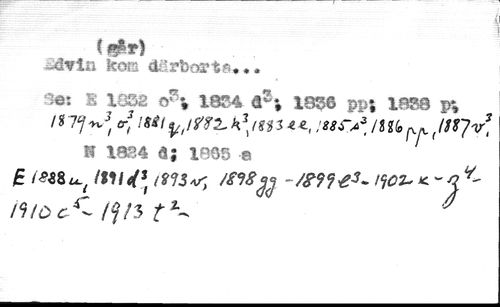 (går)
Edvin kom därborta...
Se: E 1832 o³; 1834 d³; 1836 pp; 1838 p;
1879 n³, o³, 1881 q, 1882 k³, 1883 ee, 1885 s³, 1886 pp, 1887 v³,
N 1824 d; 1865 a
E 1888 u, 1891 d³, 1893 v, 1898 gg - 1899 e³ - 1902 x - z⁴ -
1910 c⁵ - 1913 t² -